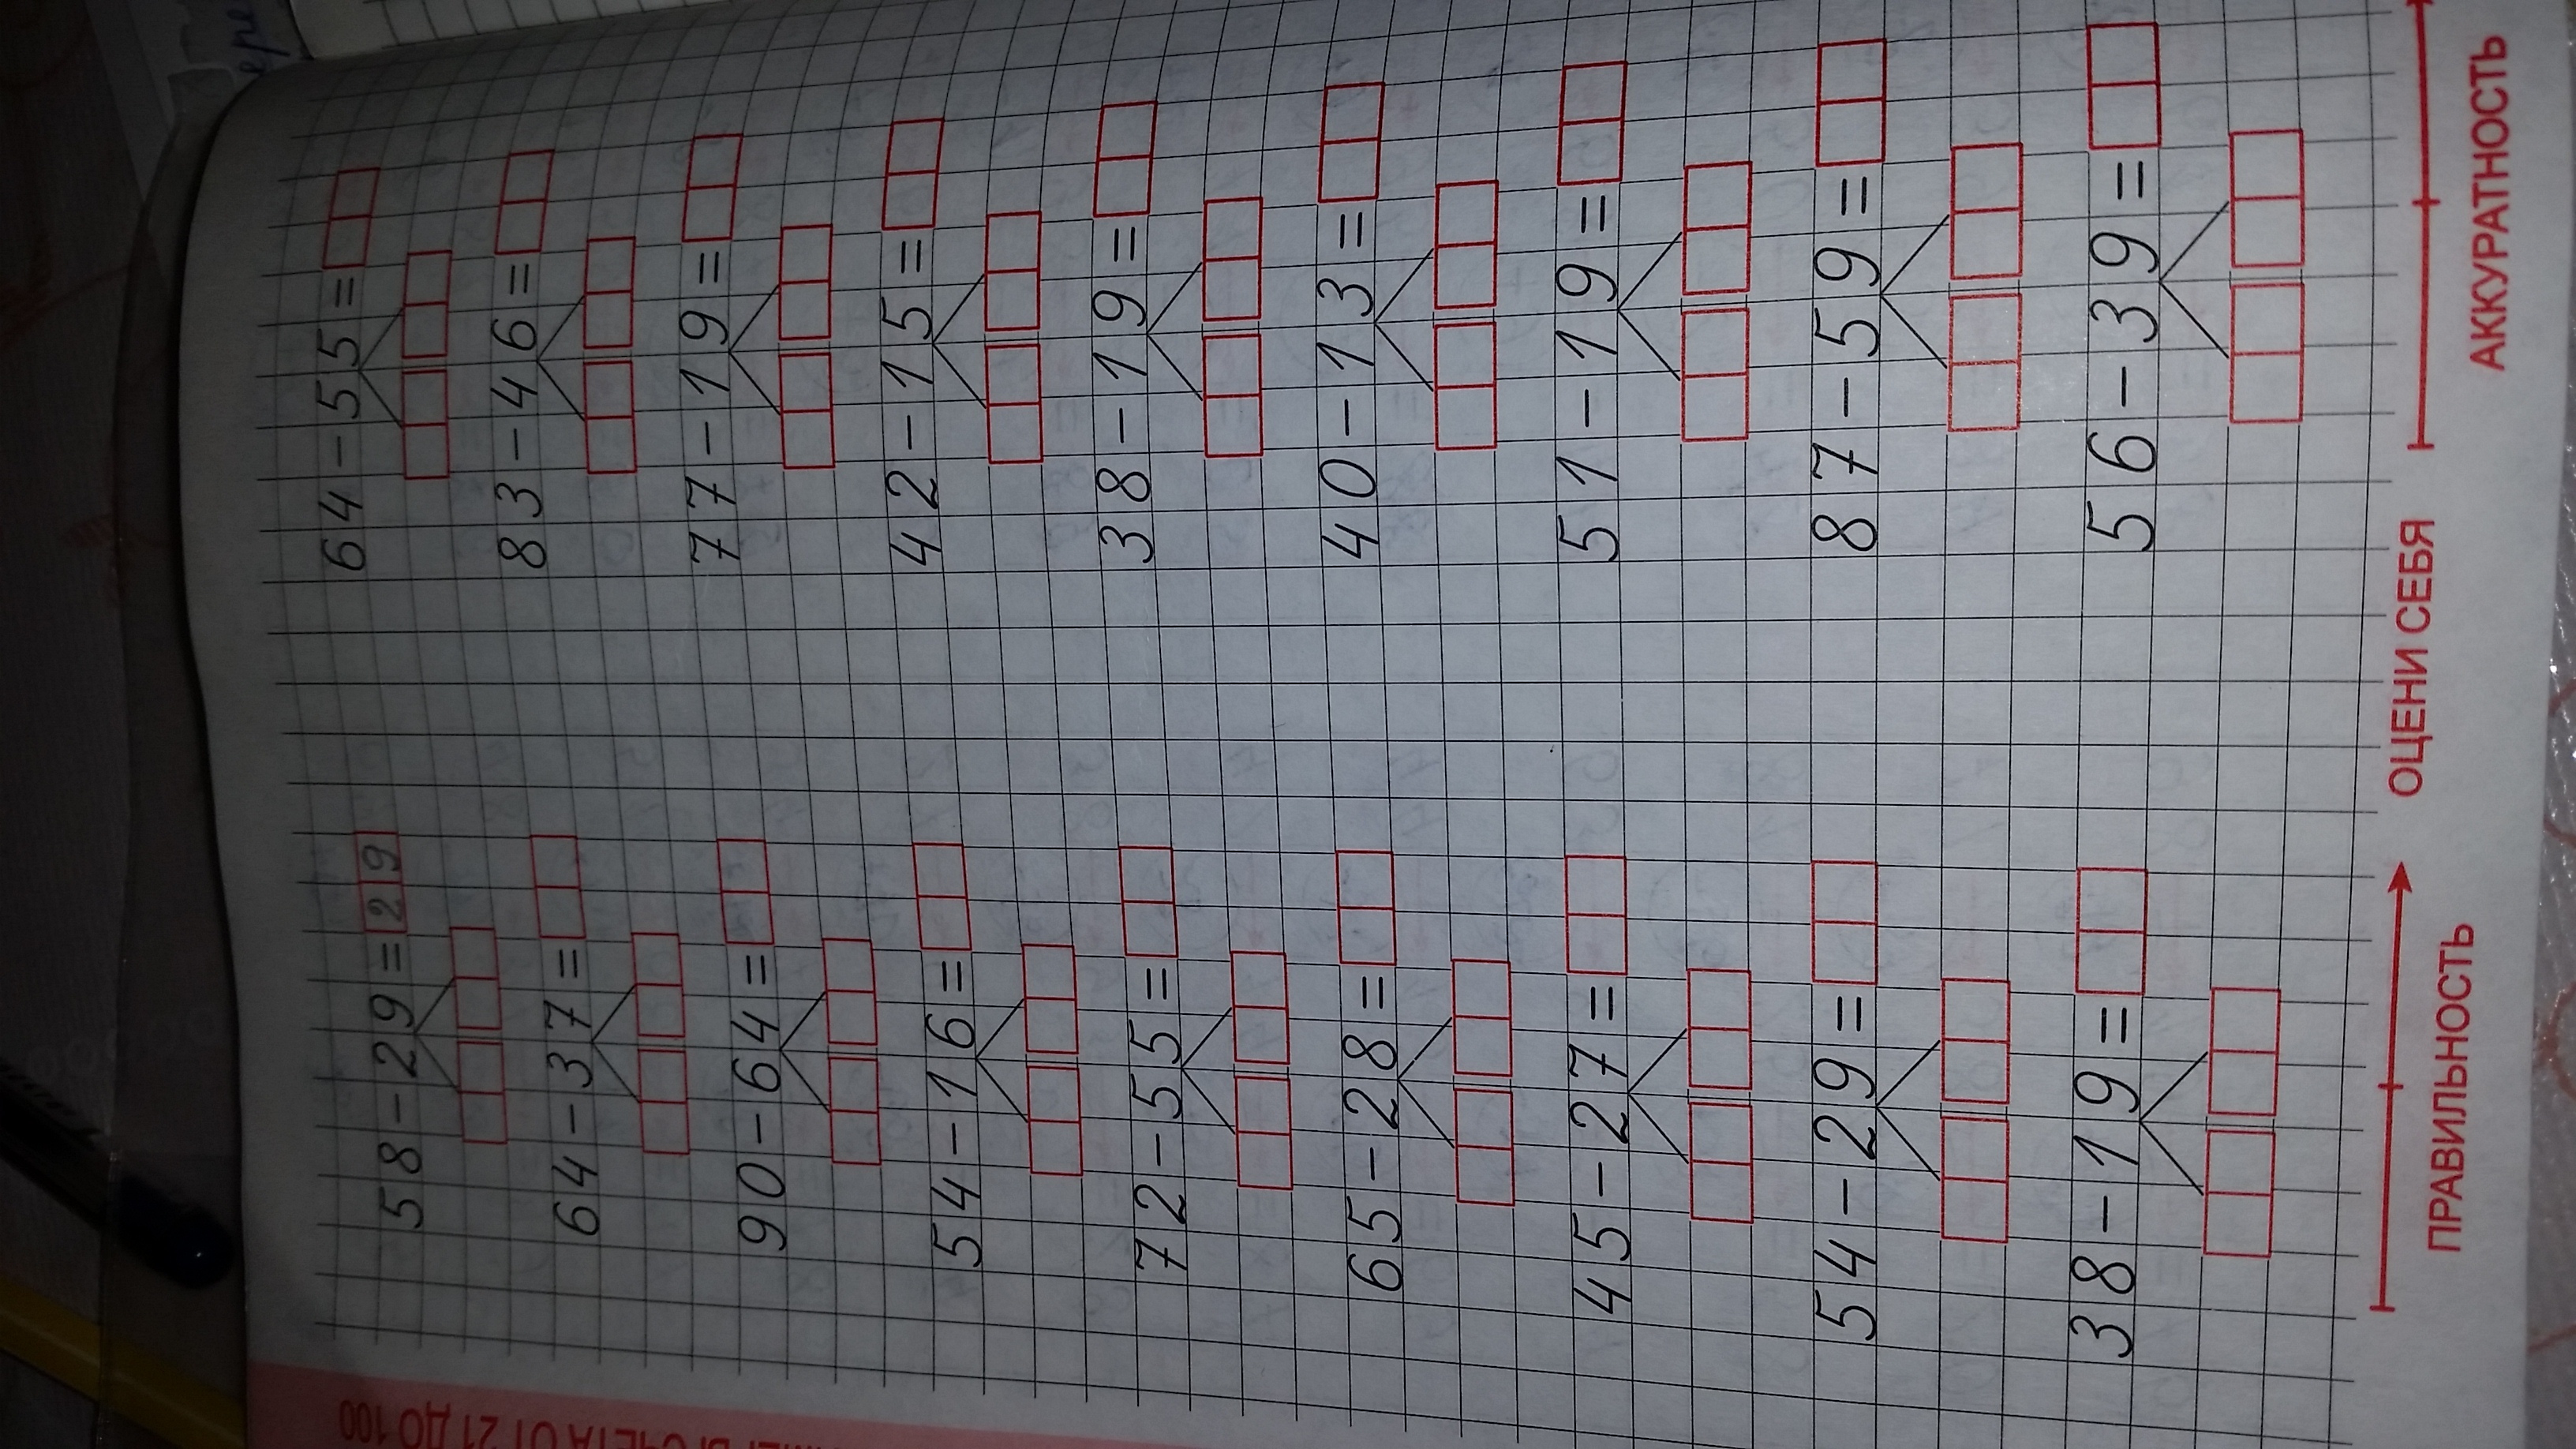 58-29=29 64-55=
64-37= 83-46=
90-64= 77-19=
54-16= 42-15=
72-55= 38-19=
65-28= 40-13=
45-27= 51-19=
54-29= 87-59=
38-19= 56-39=
ПРАВИЛЬНОСТЬ ОЦЕНИ СЕБЯ АККУРАТНОСТЬ
СЧЕТА ОТ 21 ДО 100